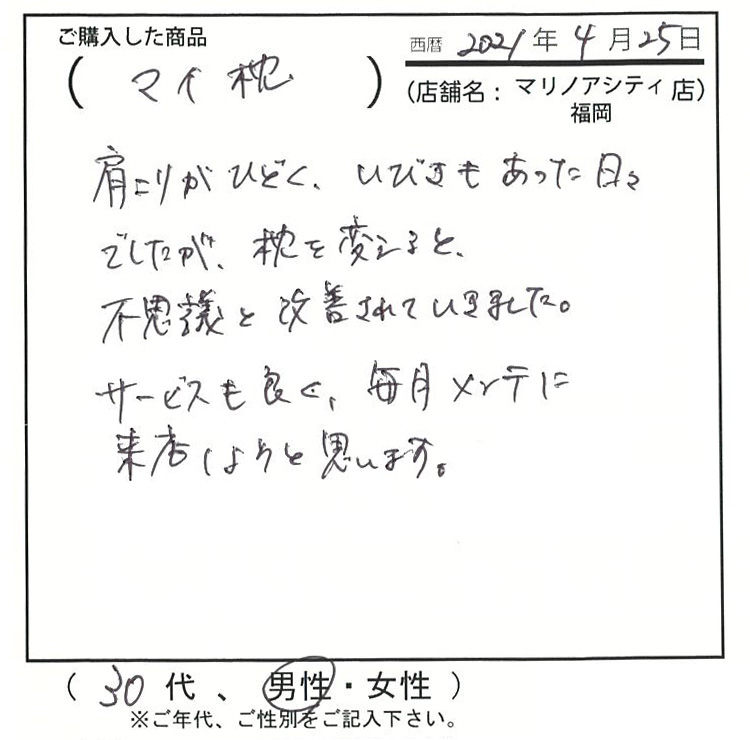 ご購入した商品
(マイ枕)
西暦 2021年4月25日
(店舗名:マリノアシティ福岡 店)
肩こりがひどく、いびきもあった日々
でしたが、枕を変えると、
不思議と改善されていきました。
サービスも良く、毎月メンテに
来店しようと思います。
(30代、男性・女性)
※ご年代、ご性別をご記入下さい。